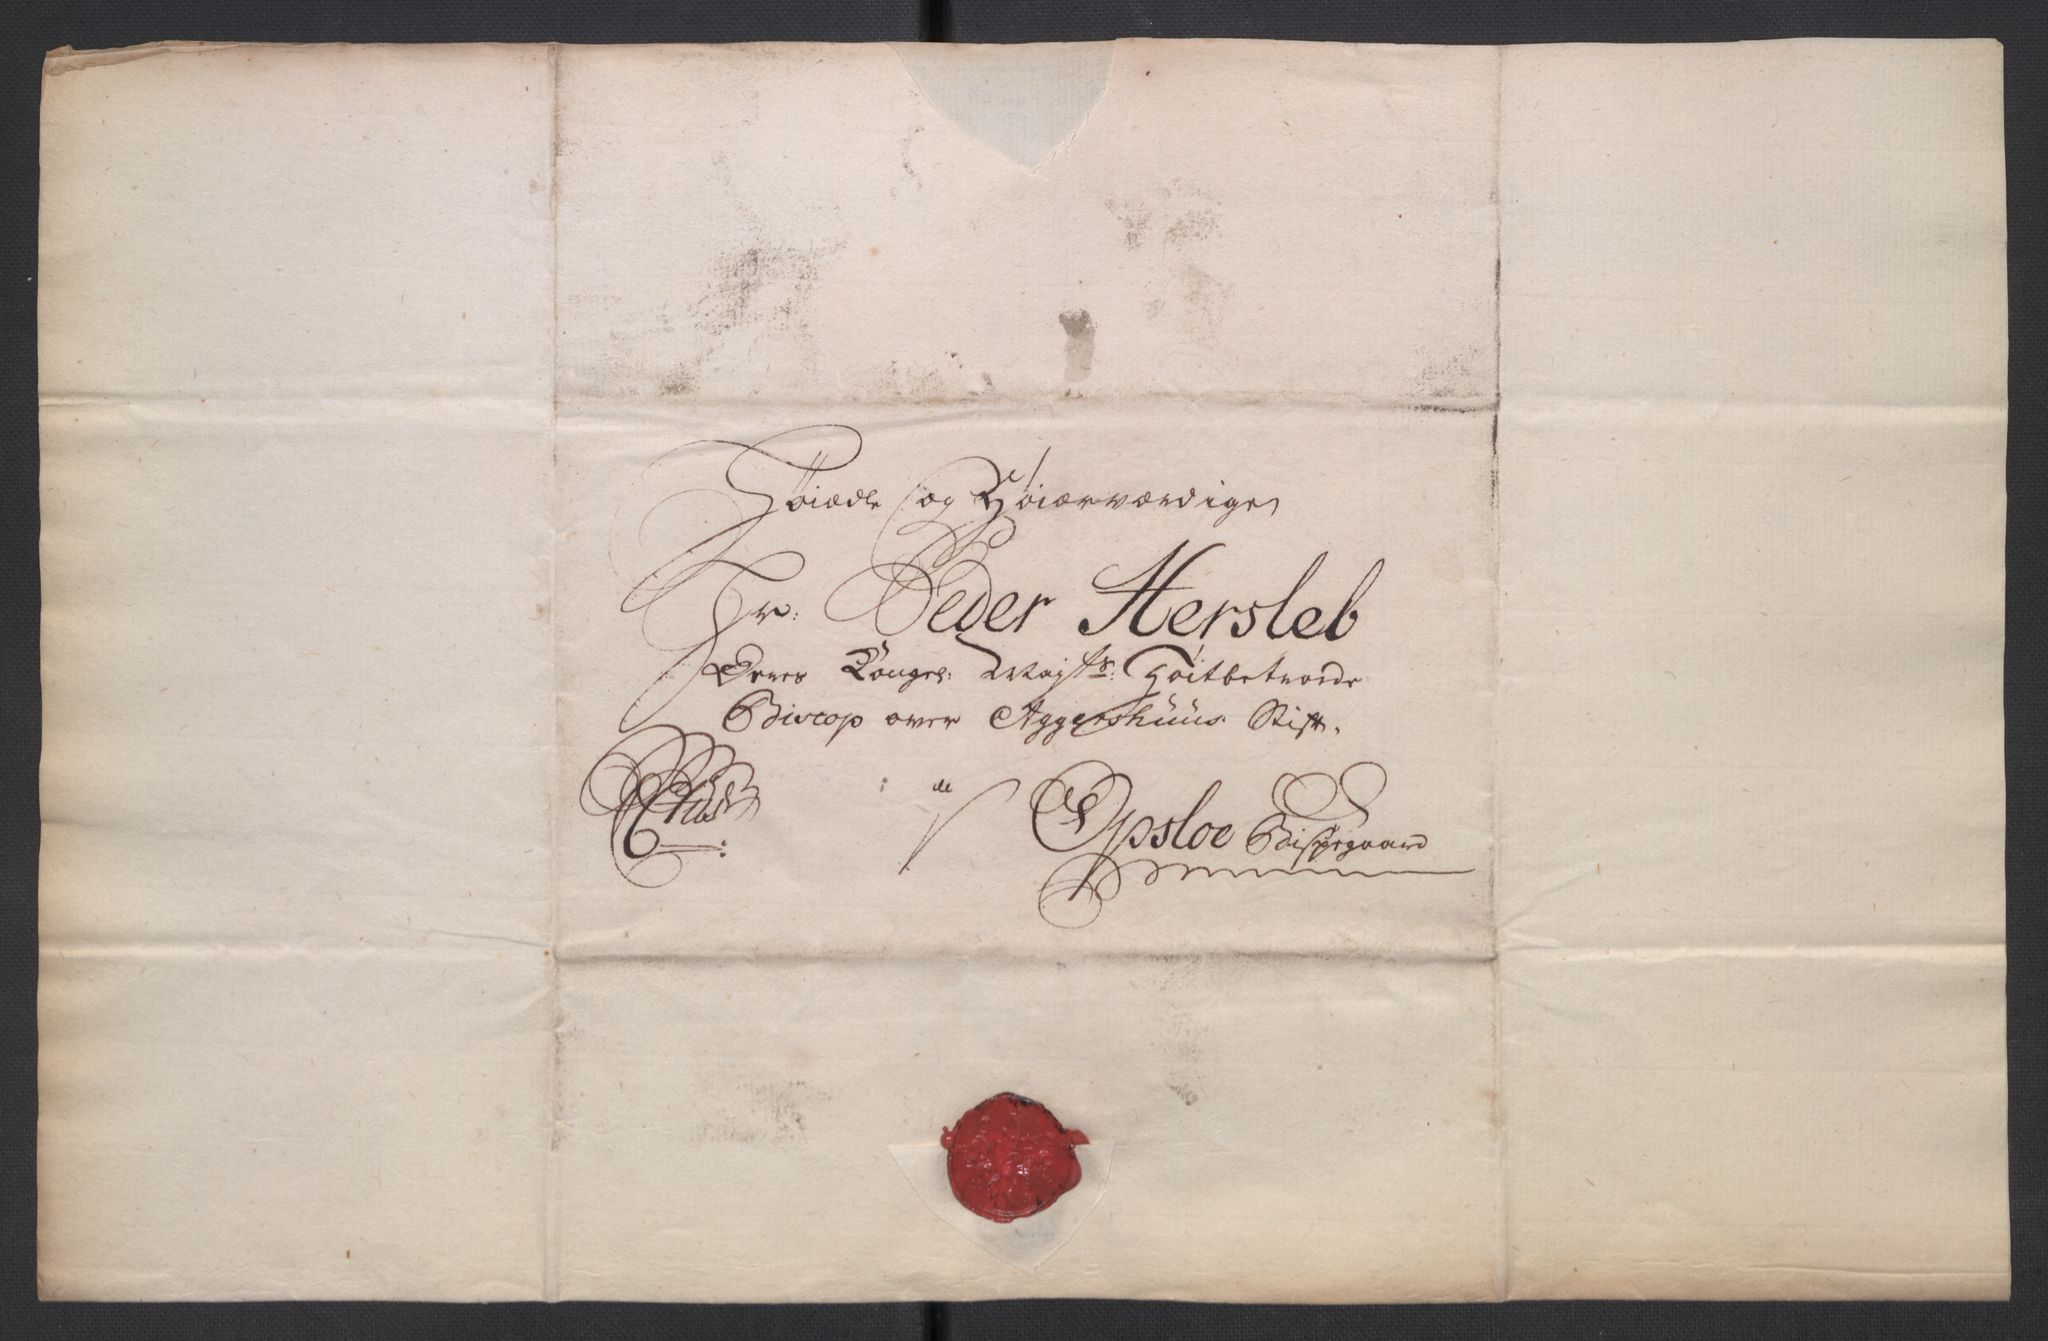 Høiædle og Høiærværdige
Hr: Peder Hersleb
Deres Kongel: Majts: Høitbetroede
Biscop over Aggershuus Stift,
a
Opsloe Bispegaard